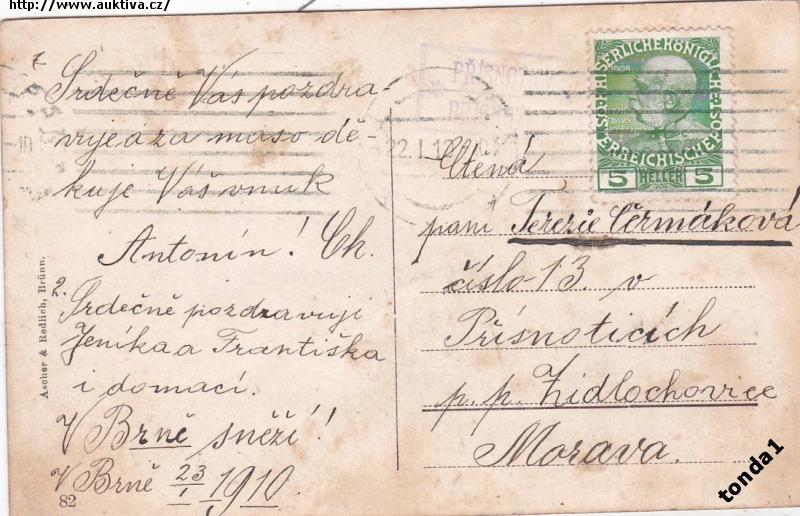 http://www.auktiva.cz/
Srdečně Vás pozdra-
vuje a za maso dě-
kuje Váš vnuk
Antonín! Ch.
2.
Srdečně pozdravuji
Jeníka a Františka
i domací.
V Brně sněží!
V Brně 23/I 1910.
82
Ascher & Redlich, Brünn.
PŘÍSNOT
22.I.12
SERLICHE KÖNIGLICHE
ÖSTERREICHISCHE
5 HELLER 5
Ctená
paní Terezie Čermáková
číslo 13. v
Přísnoticích
p. p. Židlochovice
Morava.
tonda1